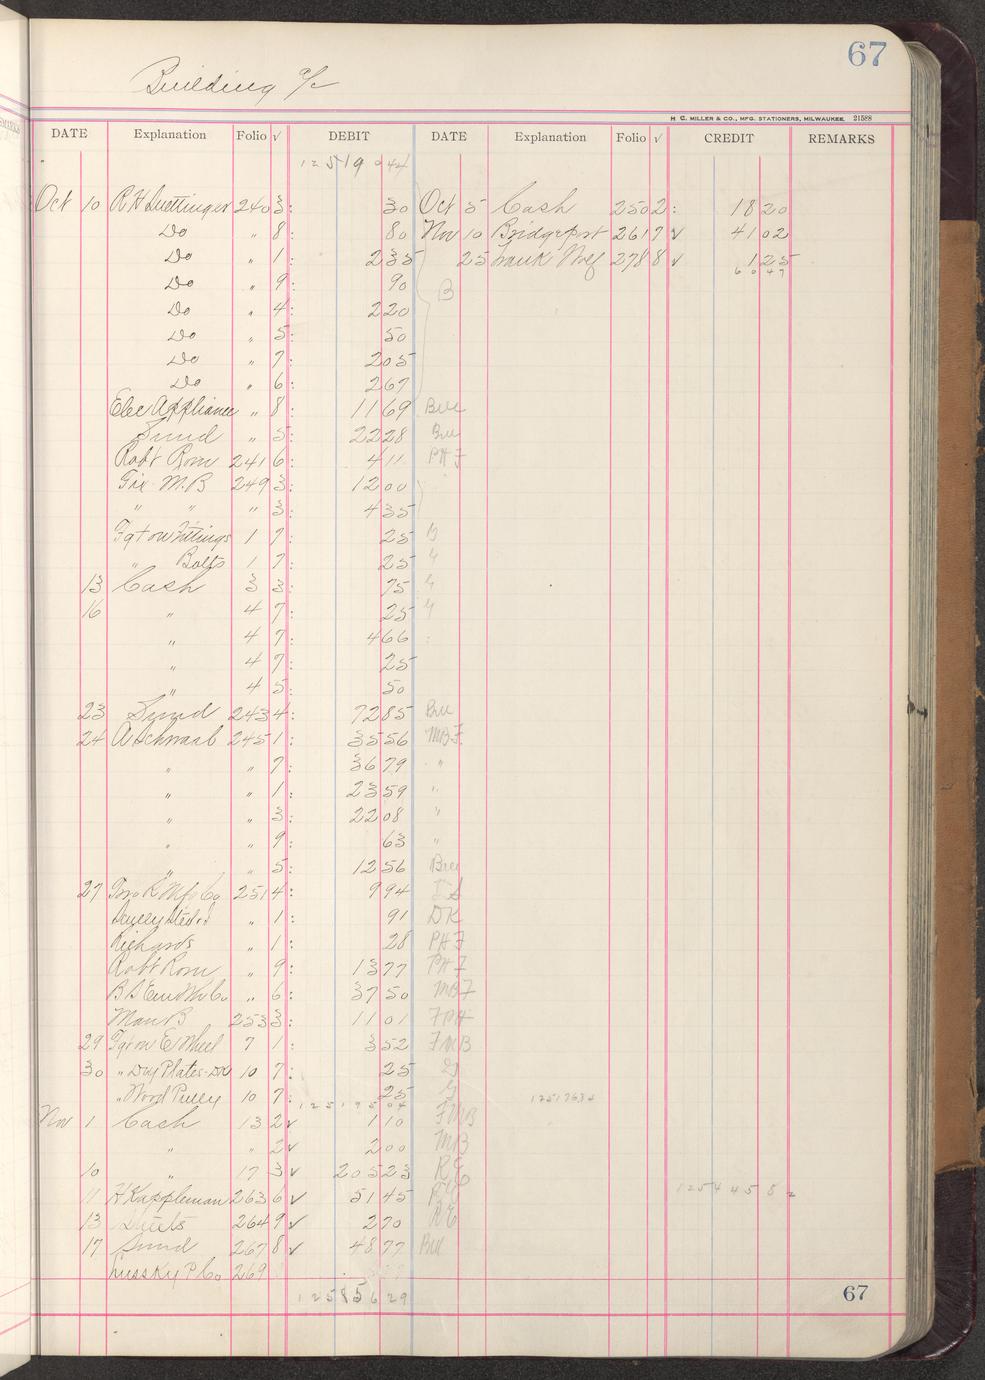 67
Building a/c
H. C. MILLER & CO., MFG. STATIONERS, MILWAUKEE. 21588
DATE Explanation Folio √ DEBIT DATE Explanation Folio √ CREDIT REMARKS
1 2 5 1 9 0 44
Oct 10 R H Duettinger 240 3: 30 Oct 5 Cash 250 2: 18 20
Do " 8: 80 Nov 10 Bridgeport 261 7 √ 41 02
Do " 1: 2 35 25 278 8 √ 1 25
6 0 47
Do " 9: 90 B
Do " 4: 2 20
Do " 5: 50
Do " 7: 2 05
Do " 6: 2 67
Elec Appliance " 8: 11 69 Bill
Sund " 5: 22 28 Bill
Robt Rom 241 6: 4 11 PHF
Gix M.B 249 3: 12 00
" " " 3: 4 35
Fgt on Fittings 1 7: 25
" Bolts 1 7: 25
13 Cash 3 3: 75
16 " 4 7: 25
" 4 7: 4 66
" 4 7: 25
" 4 5: 50
23 Sund 243 4: 72 85 Bill
24 A Schwaab 245 1: 35 56 MBF
" " 7: 36 79 "
" " 1: 23 59 "
" " 3: 22 08 "
" " 9: 63 "
" " 5: 12 56 Bill
27 K Mfg Co 251 4: 9 94
" 1: 91 DK
Richards " 1: 28 PHF
Robt Rom " 9: 13 77 PHF
B S Em Wh Co " 6: 37 50 MBF
Man B 253 3: 11 01 FPH
29 Fgt on E Wheel 7 1: 3 52 FMB
30 " Dry Plates-DK 10 7: 25
" Wood Pulley 10 7: 25
1 2 5 1 9 5 04 12517634
Nov 1 Cash 13 2 √ 1 10 FMB
" " 2 √ 2 00 MB
10 " 17 3 √ 205 23
1 2 5 4 4 5 8 2
11 H Kappleman 263 6 √ 51 45
13 Sheets 264 9 √ 2 70
17 Sund 267 8 √ 48 77 Bill
P Co 269
1 2 5 8 5 6 29
67